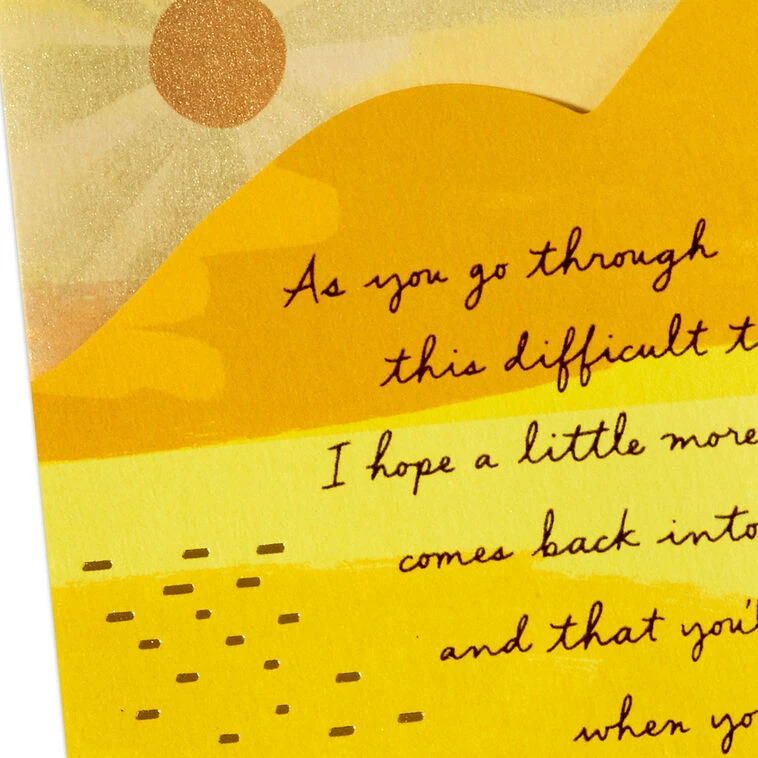 As you go through
this difficult t
I hope a little more
comes back into
and that you'l
when yo